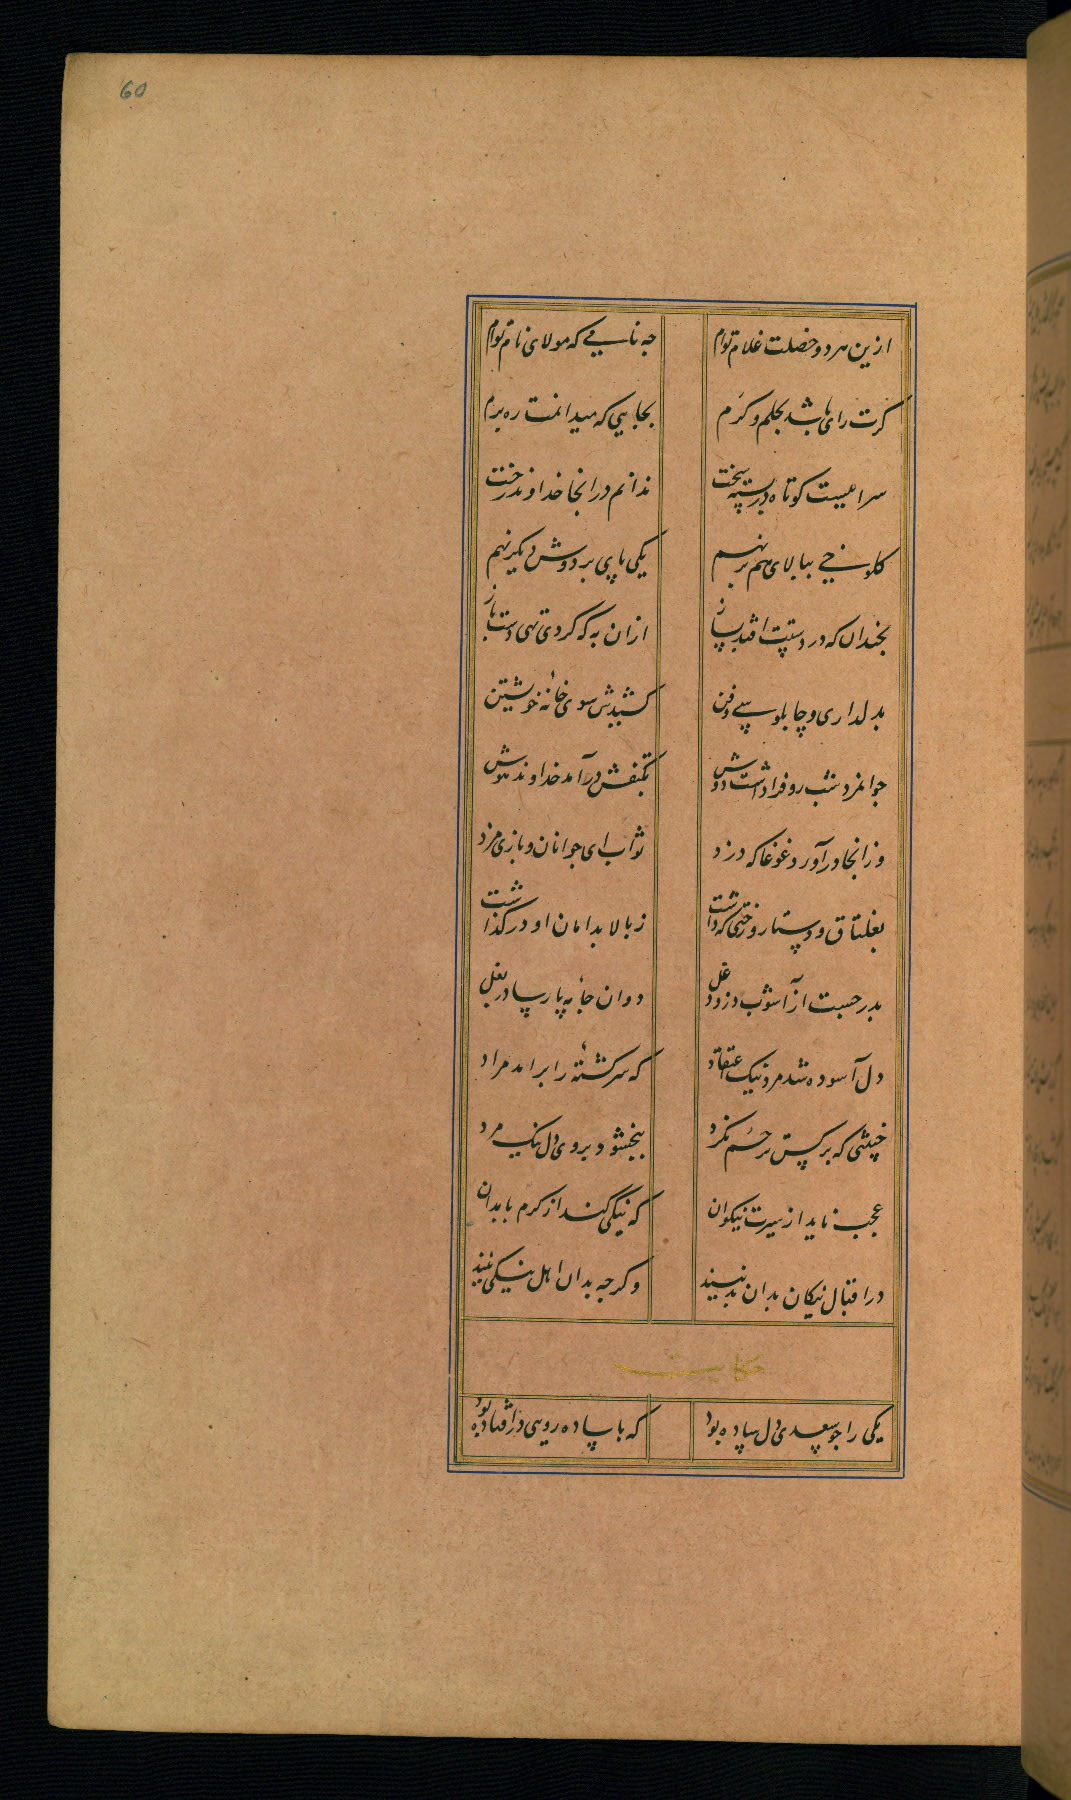 60
ازین هر دو خصلت غلام توام چه نامی که مولای نام توام
کرت رای باشد بحلم و کرم بجایی که میدانمت ره برم
سراییست کوتاه و در بسته سخت ندانم در انجا خداوند رخت
کلوخی ببالای هم بر نهیم یکی پای بر دوش دیکر نهیم
بچندان که در دستت افتد بساز ازان به که کردی تهی دست باز
بدلداری و چابلوسی و فن کشیدش سوی خانه خویشتن
جوانمرد شب رو فرا داشت دوش بکتفش درآمد خداوند هوش
وزانجا درآورد غوغا که دزد ثواب ای جوانان و یاری و مزد
بغلتاق و دستار و رختی که داشت ز بالا بدامان او در کذاشت
بدر جست از آشوب دزد دغل دوان جامه پارسا در بغل
دل آسوده شد مرد نیک اعتقاد که سرکشتهٔ را برامد مراد
خبیثی که بر کس ترحم نکرد ببخشود بر وی دل نیک مرد
عجب ناید از سیرت نیکوان که نیکی کنند از کرم با بدان
در اقبال نیکان بدان بد نیبند وکر چه بدان اهل نیکی نیند
حکایت
یکی را چو سعدی دل ساده بود که با ساده رویی در افتاده بود